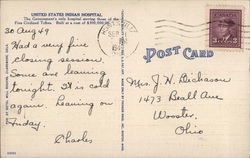 UNITED STATES INDIAN HOSPITAL
The Government's only hospital serving three of the
Five Civilized Tribes. Built at a cost of
30 Aug 49
Had a very fine
closing session.
Some are leaving
tonight. It is cold
again. Leaving on
Friday.
Charles
POST CARD
Mrs. J. W. Dickason
1473 Beall Ave
Wooster,
Ohio